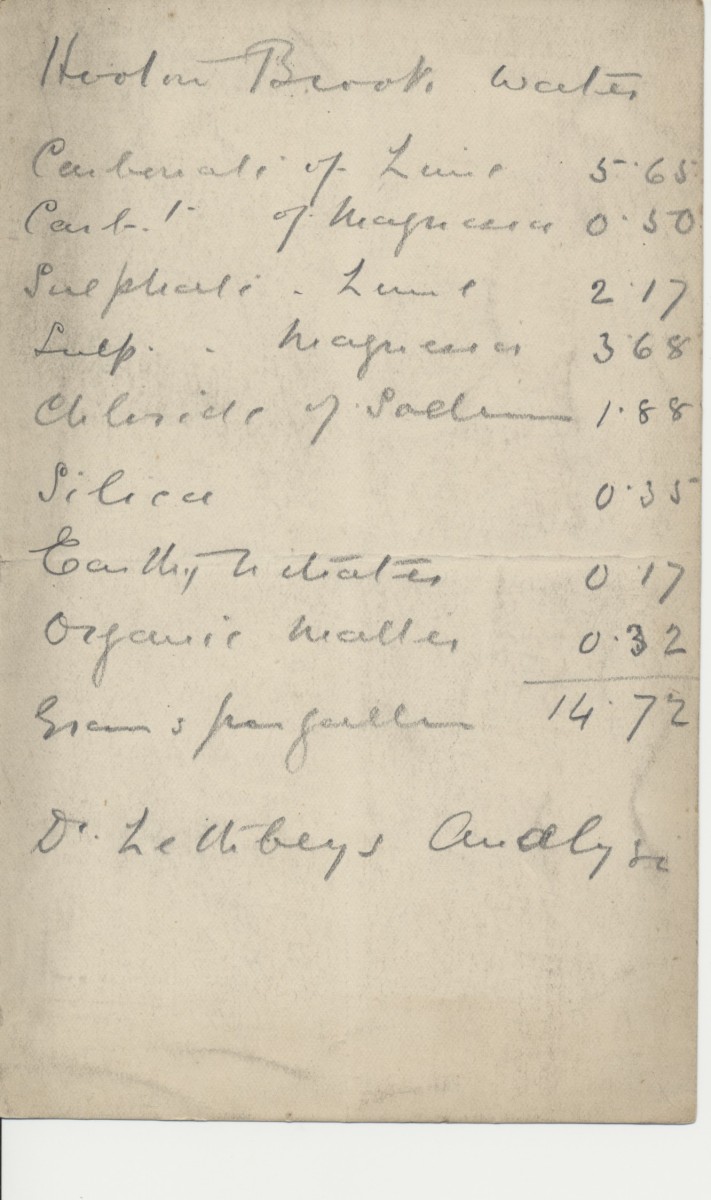 Hooton Brook Water
Carbonate of Lime 5·65
Carb.t of Magnesia 0·50
Sulphate . Lime 2·17
Sulp. . Magnesia 3·68
Chloride of Sodium 1·88
Silica 0·35
Earthy Nitrates 0·17
Organic Matter 0·32
Grains per gallon 14·72
Dr. Lethbeys Analysis